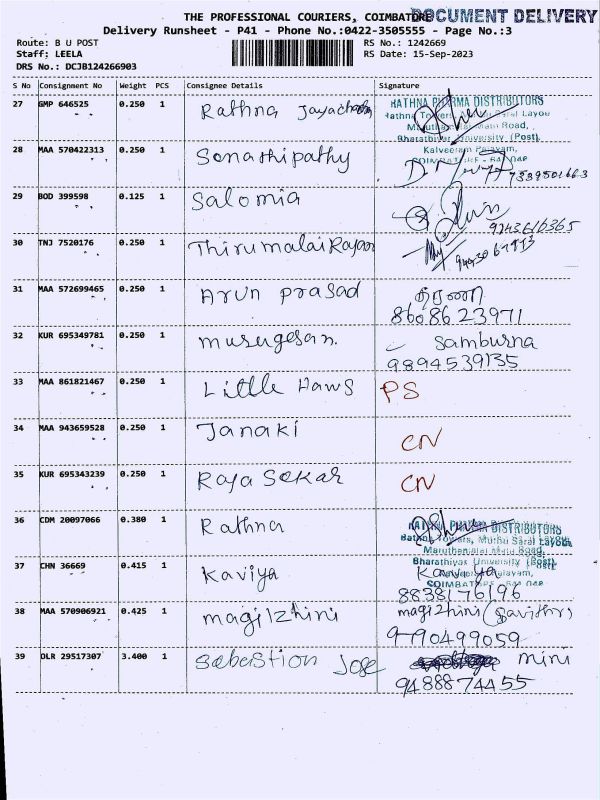 THE PROFESSIONAL COURIERS, COIMBATORE
DOCUMENT DELIVERY
Delivery Runsheet - P41 - Phone No.:0422-3505555 - Page No.:3
Route: B U POST
RS No.: 1242669
Staff: LEELA
RS Date: 15-Sep-2023
DRS No.: DCJB124266903
S No Consignment No Weight PCS Consignee Details Signature
27 GMP 646525 0.250 1 Rathna
RATHNA PHARMA DISTRIBUTORS
Bharathiyar University (Post),
28 MAA 570422313 0.250 1 Senathipathy
29 BOD 399598 0.125 1 Salomia
9243616365
30 TNJ 7520176 0.250 1 Thirumalai Rajan
31 MAA 572699465 0.250 1 Arun prasad தரணி
8608623971
32 KUR 695349781 0.250 1 murugesan. Samburna
9894539135
33 MAA 861821467 0.250 1 Little Haws PS
34 MAA 943659528 0.250 1 Janaki CN
35 KUR 695343239 0.250 1 Raja Sekar CN
36 CDM 20097066 0.380 1 Rathna
RATHNA PHARMA DISTRIBUTORS
37 CHN 36669 0.415 1 Kaviya
Bharathiyar University (Post)
Kaviya
8838176196
38 MAA 570906921 0.425 1 magilzhini magizhini
9790499059
39 DLR 29517307 3.400 1 Sebastion Jose mini
9488874455